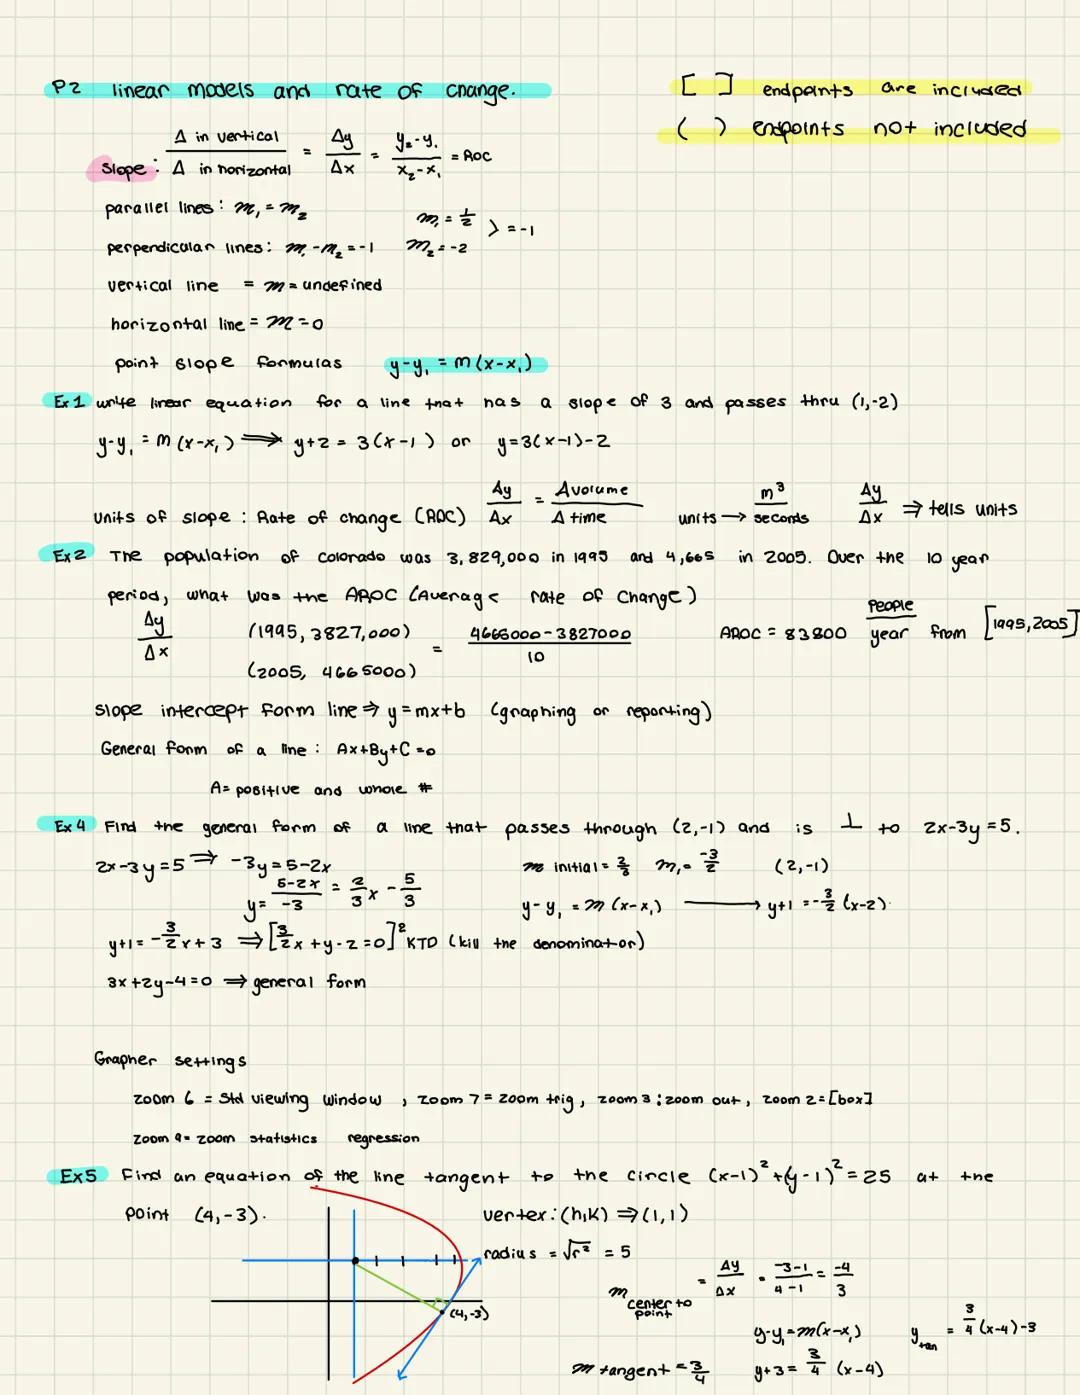 P2 linear models and rate of change.
[ ] endpoints are included
( ) endpoints not included
slope: Δ in vertical / Δ in horizontal = Δy/Δx = y₂-y₁ / x₂-x₁ = AOC
parallel lines: m₁ = m₂
m₁ = 1/2 > = -1
perpendicular lines: m₁ - m₂ = -1 m₂ = -2
vertical line = m = undefined
horizontal line = m = 0
point slope formulas y-y₁ = m(x-x₁)
Ex 1 write linear equation for a line that has a slope of 3 and passes thru (1,-2)
y-y₁ = m(x-x₁) ⟹ y+2 = 3(x-1) or y=3(x-1)-2
units of slope: Rate of change (ROC) Δy/Δx = Δvolume/Δtime units → m³/seconds Δy/Δx ⇒ tells units
Ex 2 The population of colorado was 3,829,000 in 1995 and 4,665 in 2005. Over the 10 year
period, what was the AROC (Average rate of change)
Δy/Δx (1995, 3827,000) = 4665000-3827000 / 10 AROC = 83800 people/year from [1995,2005]
(2005, 4665000)
slope intercept form line ⇒ y=mx+b (graphing or reporting)
General form of a line: Ax+By+C=0
A= positive and whole #
Ex 4 Find the general form of a line that passes through (2,-1) and is ⊥ to 2x-3y=5.
2x-3y=5 ⇒ -3y=5-2x m initial = 2/3 m₁ = -3/2 (2,-1)
y= 5-2x / -3 = 2/3 x - 5/3 y-y₁ = m(x-x₁) → y+1 = -3/2 (x-2)
y+1 = -3/2 x+3 ⇒ [3/2 x +y-2=0]² KTD (kill the denominator)
3x+2y-4=0 ⇒ general form
Grapher settings
zoom 6 = Std viewing window, zoom 7 = zoom trig, zoom 3: zoom out, zoom 2=[box]
zoom 9= zoom statistics regression
Ex5 Find an equation of the line tangent to the circle (x-1)²+(y-1)²=25 at the
point (4,-3).
vertex: (h,K) ⇒ (1,1)
radius = √r² = 5
m center to point = Δy/Δx = -3-1 / 4-1 = -4/3
(4,-3)
y-y₁=m(x-x₁) y tan = 3/4 (x-4)-3
m tangent = 3/4 y+3 = 3/4 (x-4)